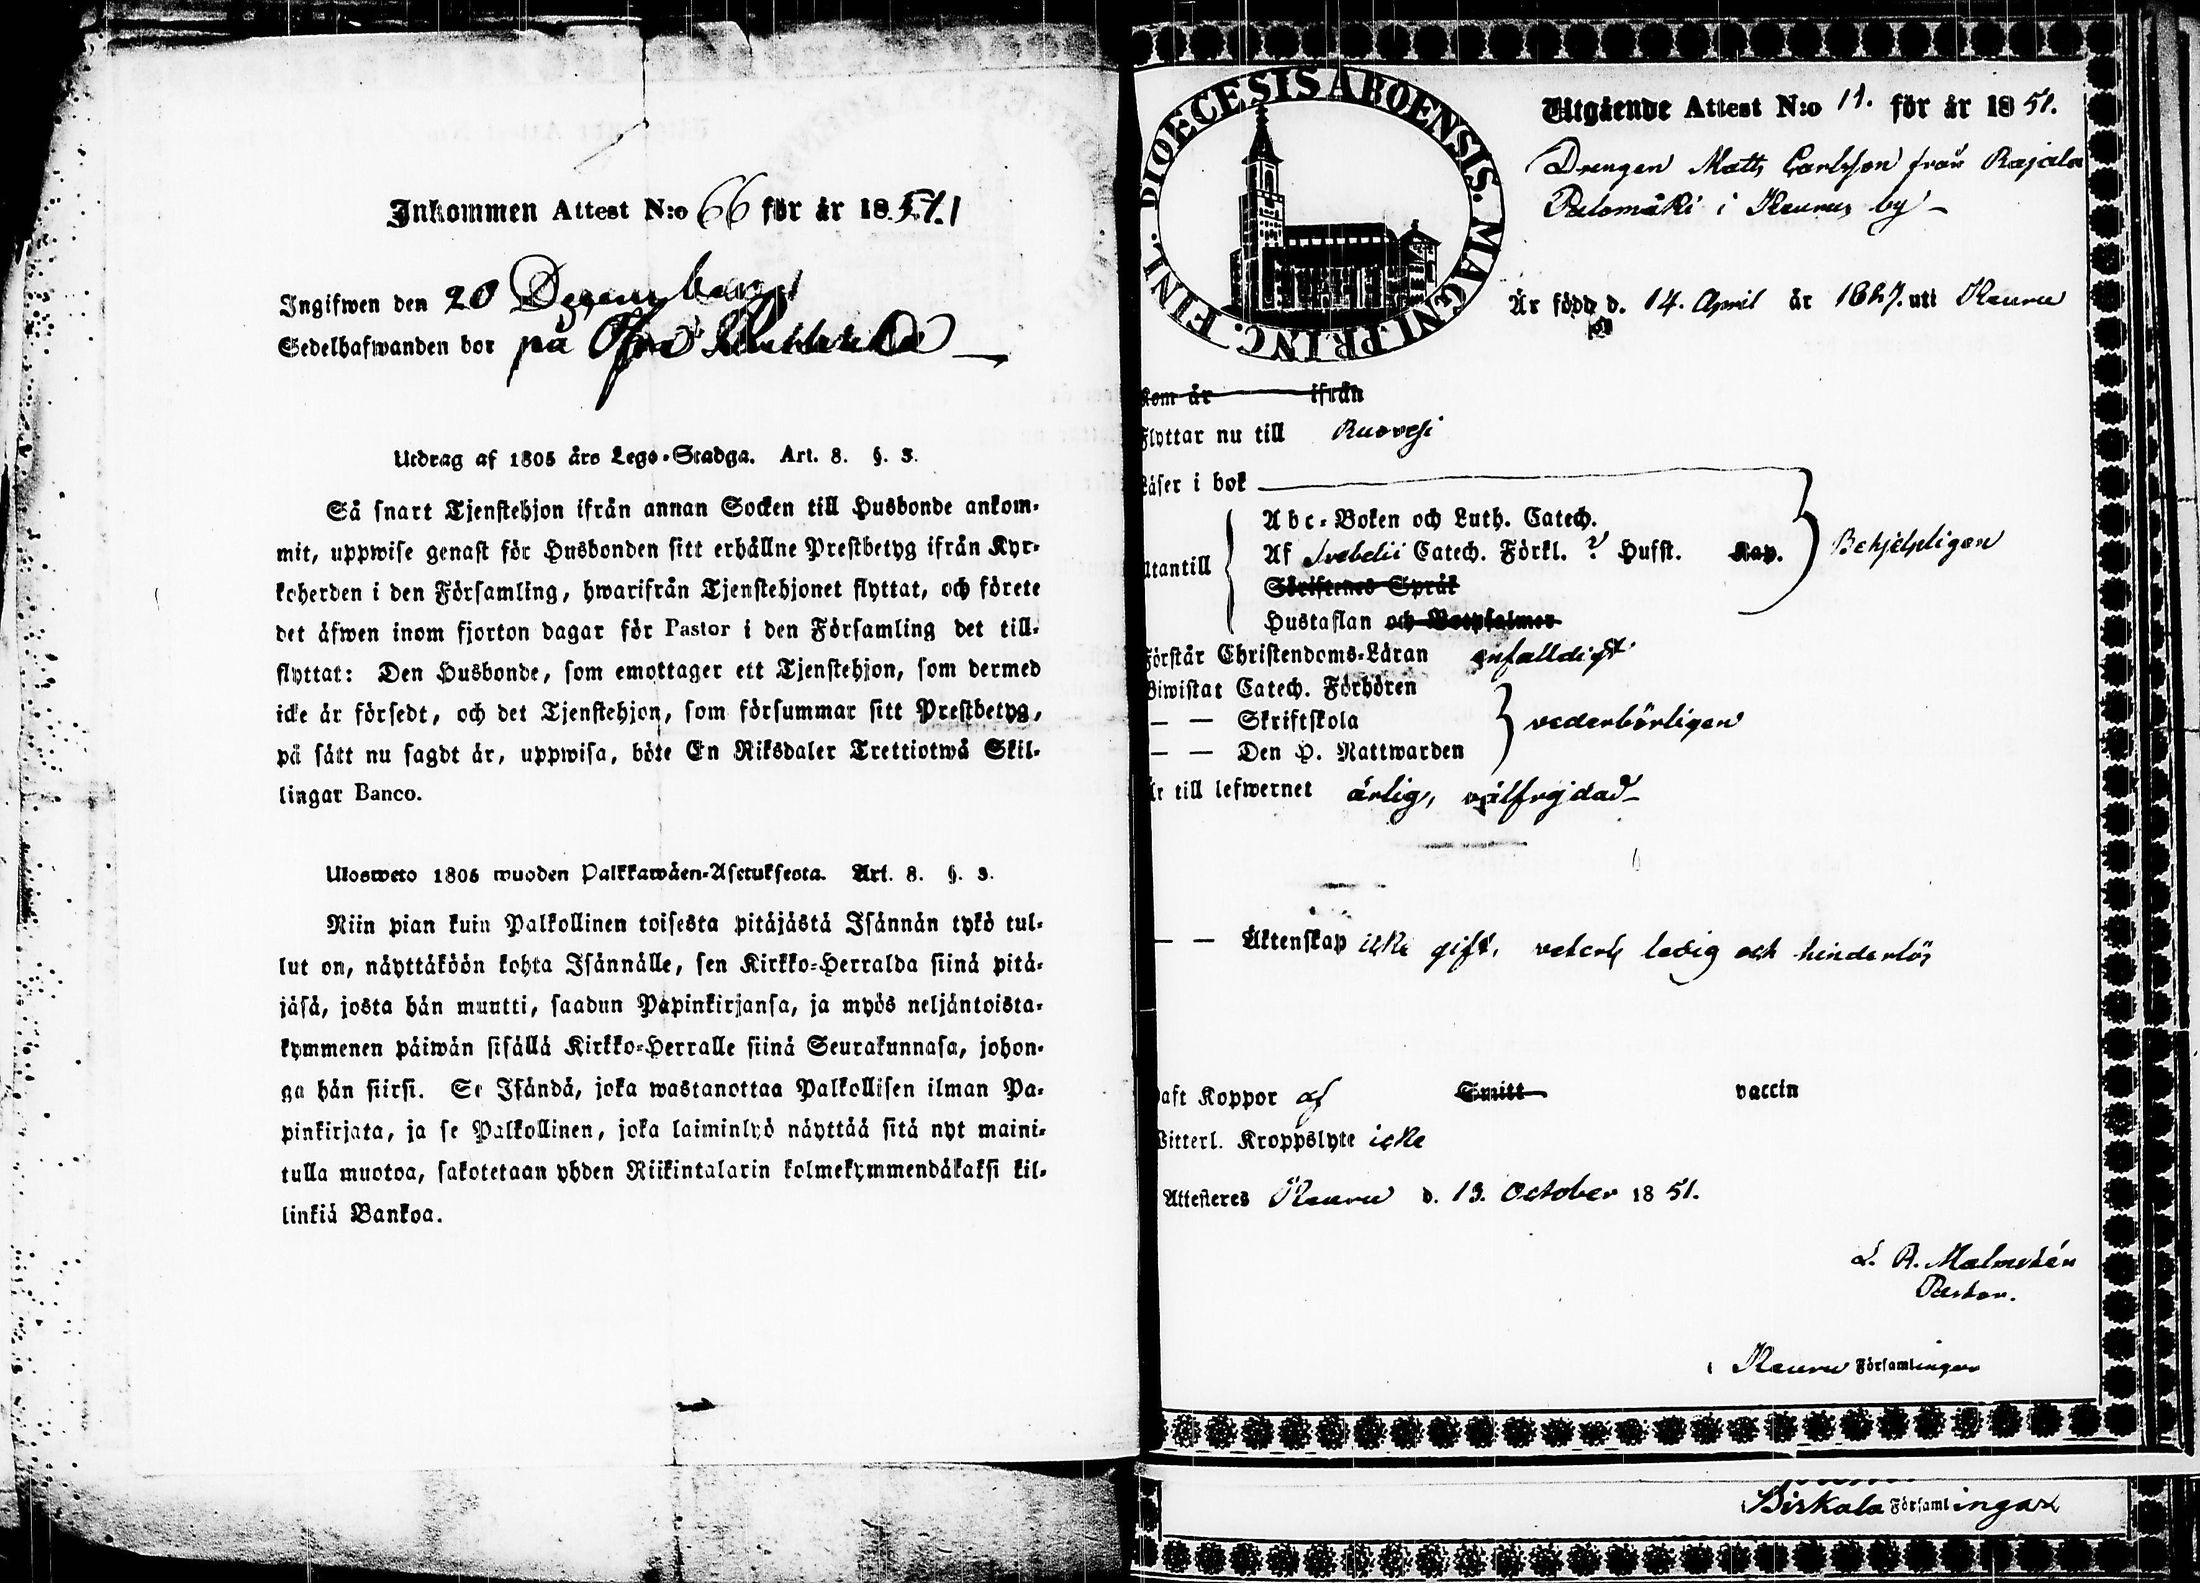 Inkommen Attest N:o 66 för år 1851
Ingifwen den 20 December
Sedelhafwanden bor på Öfra
Utdrag af 1805 års Lego-Stadga. Art. 8. §. 3.
Så snart Tjenstehjon ifrån annan Socken till Husbonde ankom-
mit, uppwise genast för Husbonden sitt erhållne Prestbetyg ifrån Kyr-
koherden i den Församling, hwarifrån Tjenstehjonet flyttat, och förete
det äfwen inom fjorton dagar för Pastor i den Församling det till-
flyttat: Den Husbonde, som emottager ett Tjenstehjon, som dermed
icke är försedt, och det Tjenstehjon, som försummar sitt Prestbetyg,
på sätt nu sagdt är, uppwisa, böte En Riksdaler Trettiotwå Skil-
lingar Banco.
Ulosweto 1805 wuoden Palkkawäen-Asetuksesta. Art. 8. §. 3.
Niin pian kuin Palkollinen toisesta pitäjästä Isännän tykö tul-
lut on, näyttäköön kohta Isännälle, sen Kirkko-Herralda siinä pitä-
jäsä, josta hän muutti, saadun Papinkirjansa, ja myös neljäntoista-
kymmenen päiwän sisällä Kirkko-Herralle siinä Seurakunnasa, johon-
ga hän siirsi. Se Isändä, joka wastanottaa Palkollisen ilman Pa-
pinkirjata, ja se Palkollinen, joka laiminlyö näyttää sitä nyt maini-
tulla muotoa, sakotetaan yhden Riikintalarin kolmekymmendäkaksi kil-
linkiä Bankoa.
DIOECESIS ABOENSIS. MAGNI. PRINC. FINL.
Utgående Attest N:o 11. för år 1851.
Drengen Matts Carlsson från Rajala
Palomäki i Keuru by
Är född d. 14. April år 1827. uti Keuru
Kom år ifrån
Flyttar nu till Ruovesi
Läser i bok
Abc-Boken och Luth. Catech.
Utantill Af Svebelii Catech. Förkl. ? Husst. Kap. Behjelpligen
Skriftenes Språk
Hustaflan och Botpsalmer
Förstår Christendoms-Läran enfalldigt
Biwistat Catech. Förhören
— — Skriftskola vederbörligen
— — Den H. Nattwarden
Är till lefwernet ärlig, välfrejdad
— — Äktenskap icke gift, veterl. ledig och hinderlös
Haft Koppor af Smitt vaccin
Witterl. Kroppslyte icke
Attesteres Keuru d. 13. October 1851.
Malmstén
Pastor.
i Keuru Församlingar
Birkala Församlingar